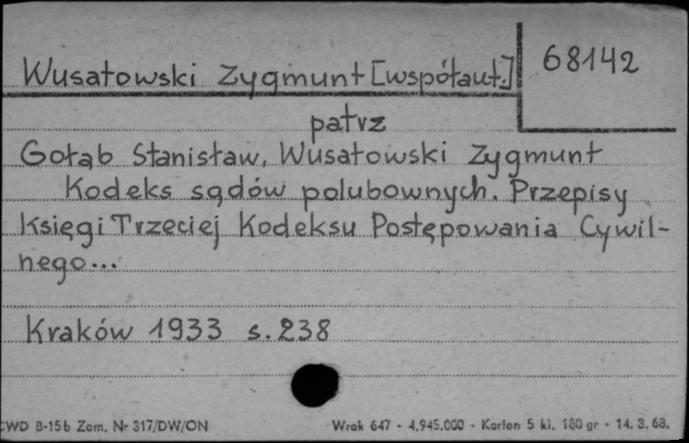 Wusatowski Zygmunt [współaut.]
68142
patrz
Gołąb Stanisław, Wusatowski Zygmunt
Kodeks sądów polubownych. Przepisy
Księgi Trzeciej Kodeksu Postępowania Cywil-
nego...
Kraków 1933 s. 238
CWD B-15b Zam. Nr 317/DW/ON
Wrok 647 - 4.945.000 - Karton 5 kl. 180 gr - 14. 3. 68.